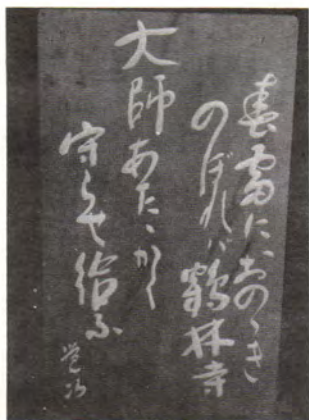 春雷におのゝき
のぼれバ鶴林寺
大師あたゝかく
守らせ給ふ